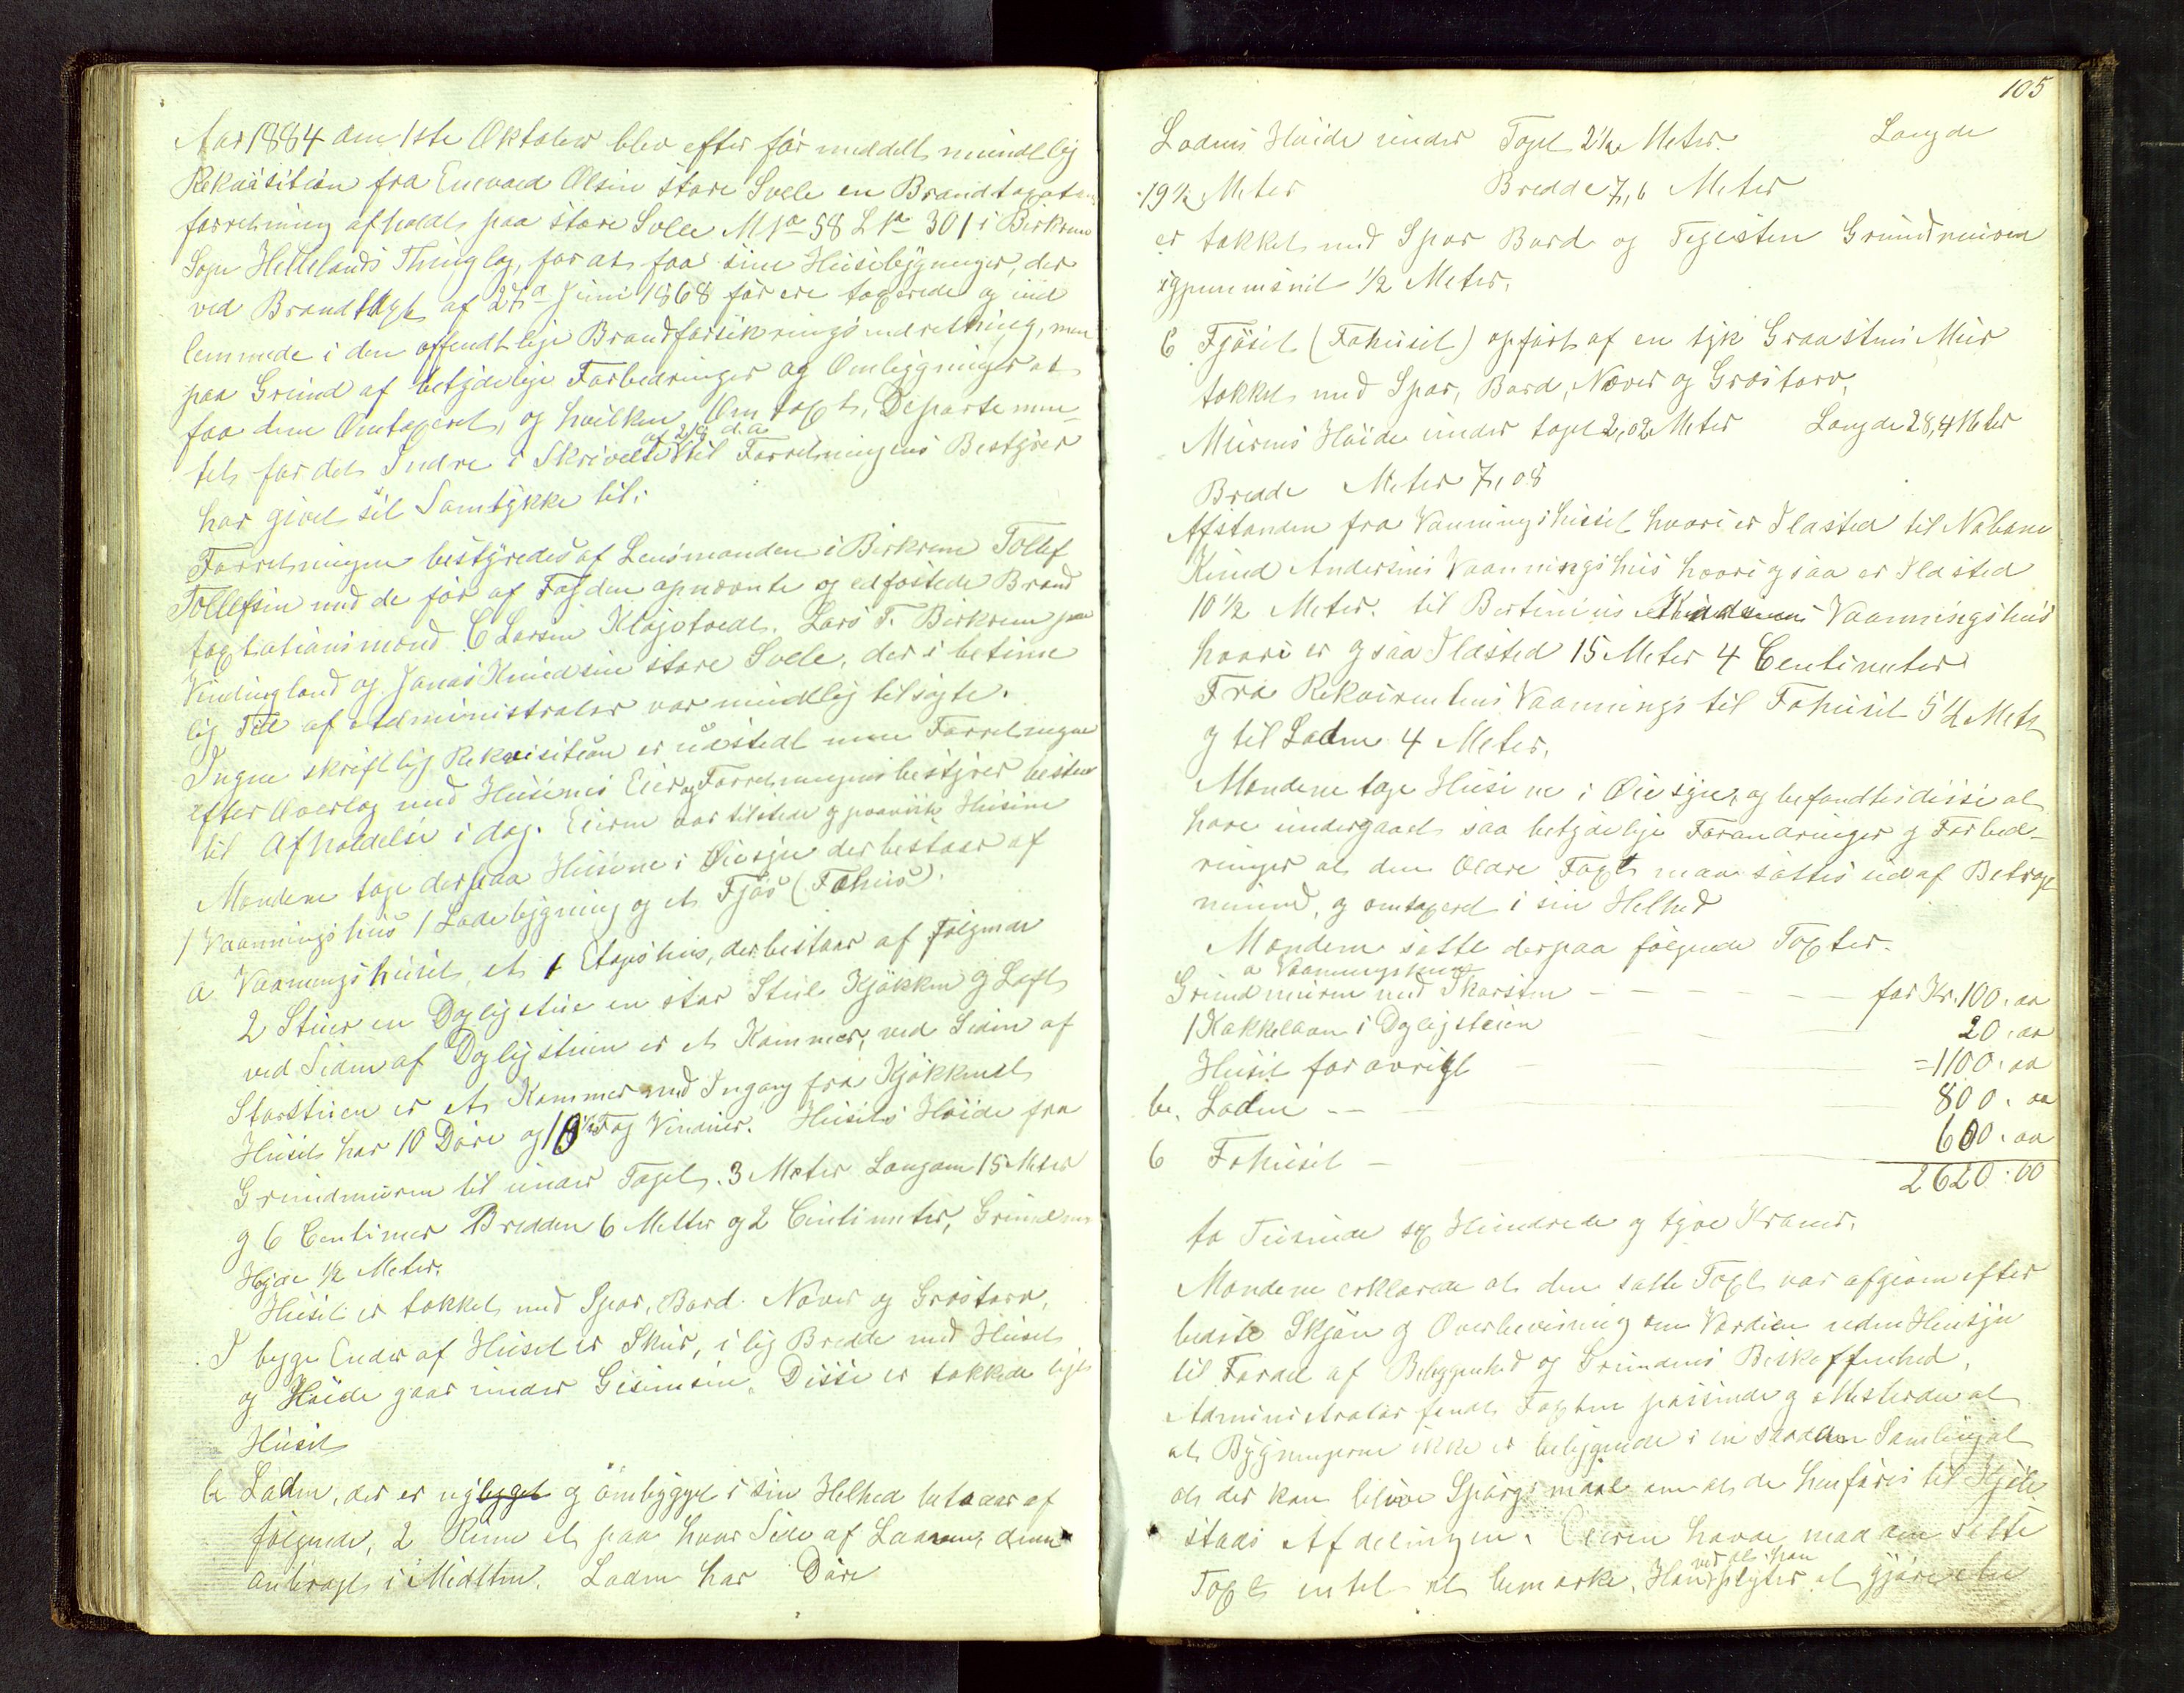 Aar 1884 den 1ste Oktober blev efter før meddelt mundtlig
Rekvisition fra Enevald Olsen store Svele en Brandtaxations
forretning afholdt paa store Svele M No 58 L No 301 i Birkrem
Sogn Hellelands Thinglag, for at faa sine Husebygninger, der
ved Brandtaxt af 27de Juni 1868 før ere taxerede og ind
lemmede i den offendtlige Brandforsikringsindretning, men
paa Grund af betydelige Forbedringer og Ombygninger at
faa dem Omtaxeret, og hvilken Omtaxt, Departemen-
tet for det Indre i Skrivelse af 2/9 d.a. til Forretningens Bestyrer
har givet sit Samtykke til.
Forretningen bestyredes af Lensmanden i Birkrem Tollef
Tollefsen med de før af Fogden opnævnte og edfæstede Brand
taxtationsmænd C Larsen Kløgetvedt. Lars T. Birkrem paa
Vindingland og Jonas Knudsen store Svele, der i betime
lig Tid af Administrator var mundtlig tilsagte.
Ingen skriftlig Rekvisition er udstedt men Forretningen
efter Overlag med Husenes Eier og Forretningens bestyrer bestemt
til Afholdelse i dag. Eieren var tilstede og paaviste Husene
Mændene toge derpaa Husene i Øiesyn der bestaar af
1 Vaaningshus 1 Ladebygning og et Fjøs (Fæhus).
a Vaaningshuset, et 1 Etages hus, der bestaar af følgende
2 Stuer en Daglig stue en stor Stue Kjøkken og Loft
ved Siden af Dagligstuen er et Kammer, ved Siden af
Storstuen er et Kammer med Ingang fra Kjøkkenet
Huset har 10 Døre og 10 Fag Vinduer. Husets Høide fra
Grundmuren til under Taget 3 Meter Længden 15 Meter
og 6 Centimer Bredden 6 Metter og 2 Centimeter, Grundmur
Højde 1/2 Meter.
Huset er tækket med Spær, Bord Næver og Græstorv,
I begge Ender af Huset er Skur, i lig Bredde med Huset
og Høide gaar under Gesimsen. Disse er tækkede ligt
Huset
b Laden, der er nybygget og ombygget i sin Helhed bestaaer af
følgende, 2 Rum et paa hver Side af Laaven, denne
anbragt i Midtten. Laden har Døre
105
Ladens Høide under Taget 2 1/2 Meter. Længde
19 1/2 Meter Bredde 7,6 Meter
er tækket med Spær Bord og Teglsten Grundmuren
igjennemsnit 1/2 Meter.
C Fjøset (Fæhuset) opført af en tyk Graastens Mur
tækket med Spær, Bord, Næver og Græstorv,
Murens Høide under taget 2,02 Meter Længde 28,4 Meter
Bredde Meter 7,08
Afstanden fra Vaaningshuset hvori er Ildsted til Naboen
Knud Andersens Vaaningshus hvori ogsaa er Ildsted
10 1/2 Meter. til Bertinius Vaaningshus
hvori er ogsaa Ildsted 15 Meter 4 Centimeter
Fra Rekvirentens Vaanings til Fæhuset 5 1/2 Meter
og til Laden 4 Meter.
Mændene toge Husene i Øiesyn, og befandtes disse at
have undergaaet saa betydelige Forandringer og Forbed-
ringer at den ældre Taxt maa sættes ud af Betragt
ning, og omtaxeret i sin Helhed
Mændene satte derpaa følgende Taxter.
a Vaaningshuset
Grundmuren med Skorsten - - - - - - for Kr. 100. 00
1 Kakkelovn i Dagligstuen - 20. 00
Huset for øvrigt - - - = 1100. 00
b. Laden - - - - 800. 00
c Fæhuset - 600. 00
2620. 00
to Tusinde sex Hundrede og tyve Kroner.
Mændene erklærede at den satte Taxt var afgiven efter
bedste Skjøn og Overbevisning om Værdien uden Hensyn
til Fordel af Beliggenhed og Grundens Beskaffenhed.
Administrator fandt Taxten passende og attesterede at
at Bygningerne ikke er bebyggede i en saadan Samling at
at der kan blive Spørgsmaal om at de henføres til Kjøb
stads Afdelingen. Eieren havde mod den satte
Taxt intet at bemærke. ved at han Han pligter at gjøre